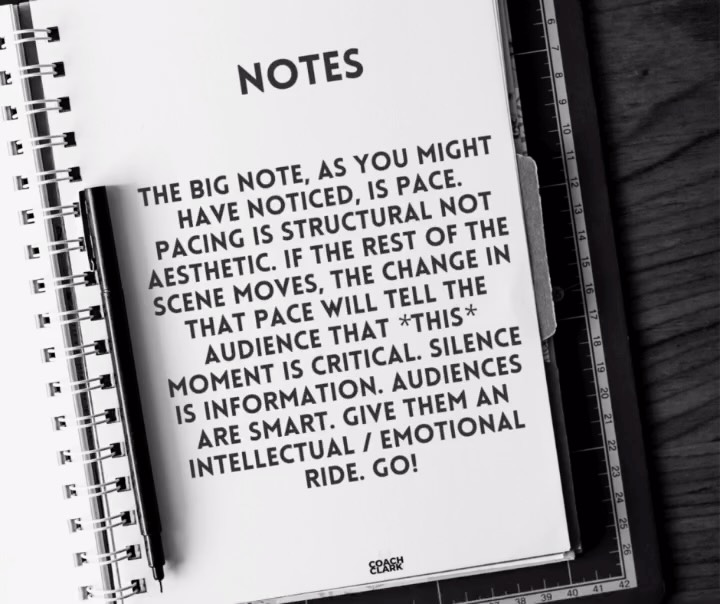 NOTES
THE BIG NOTE, AS YOU MIGHT
HAVE NOTICED, IS PACE.
PACING IS STRUCTURAL NOT
AESTHETIC. IF THE REST OF THE
SCENE MOVES, THE CHANGE IN
THAT PACE WILL TELL THE
AUDIENCE THAT *THIS*
MOMENT IS CRITICAL. SILENCE
IS INFORMATION. AUDIENCES
ARE SMART. GIVE THEM AN
INTELLECTUAL / EMOTIONAL
RIDE. GO!
COACH
CLARK
6
7
8
9
10
11
12
13
14
15
16
17
18
19
20
21
22
23
24
25
26
38
39
40
41
42